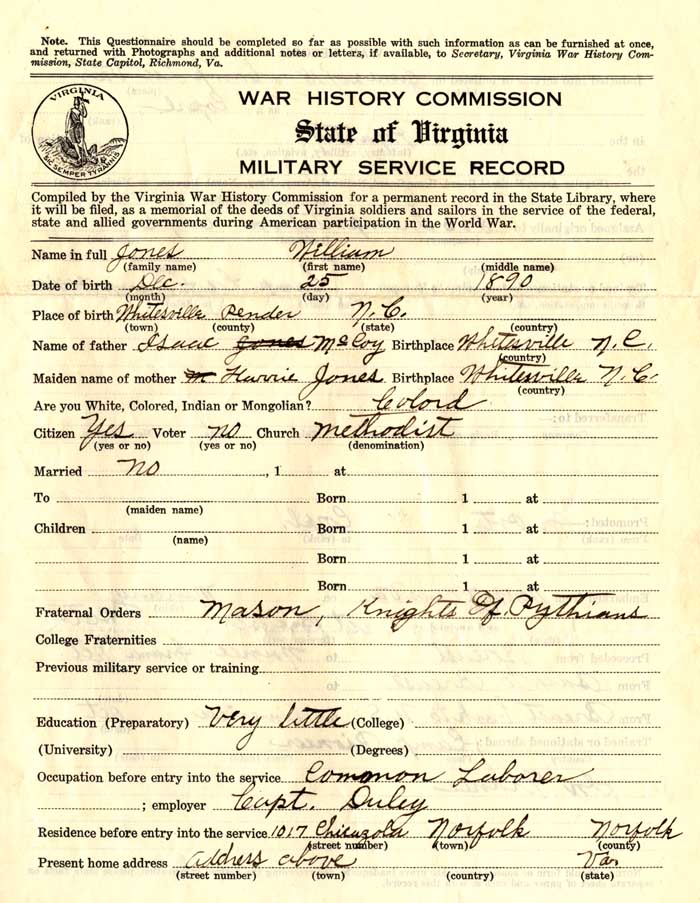 Note. This Questionnaire should be completed so far as possible with such information as can be furnished at once,
and returned with Photographs and additional notes or letters, if available, to Secretary, Virginia War History Com-
mission, State Capitol, Richmond, Va.
VIRGINIA
SIC SEMPER TYRANNIS
WAR HISTORY COMMISSION
State of Virginia
MILITARY SERVICE RECORD
Compiled by the Virginia War History Commission for a permanent record in the State Library, where
it will be filed, as a memorial of the deeds of Virginia soldiers and sailors in the service of the federal,
state and allied governments during American participation in the World War.
Name in full Jones William
(family name) (first name) (middle name)
Date of birth Dec. 25 1890
(month) (day) (year)
Place of birth Whitesville Pender N.C.
(town) (county) (state) (country)
Name of father Isaac Jones McCoy Birthplace Whitesville N.C.
(country)
Maiden name of mother Harrie Jones Birthplace Whitesville N.C.
(country)
Are you White, Colored, Indian or Mongolian? Colord
Citizen Yes Voter no Church Methodist
(yes or no) (yes or no) (denomination)
Married no , 1 at
To Born 1 at
(maiden name)
Children Born 1 at
(name)
Born 1 at
Born 1 at
Fraternal Orders Mason, Knights Of Pythians
College Fraternities
Previous military service or training
Education (Preparatory) Very little (College)
(University) (Degrees)
Occupation before entry into the service Common Laborer
; employer Capt. Duley
Residence before entry into the service 1017 Norfolk Norfolk
(street number) (town) (county)
Present home address address above Va.
(street number) (town) (country) (state)